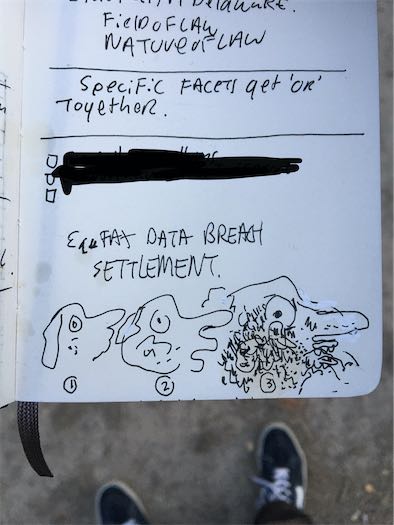 FieLD OF LAW
NATURE OF LAW
Specific FACETS get 'OR'
Together.
EquFAX DATA BREASH
SETTLEMENT.
1 2 3